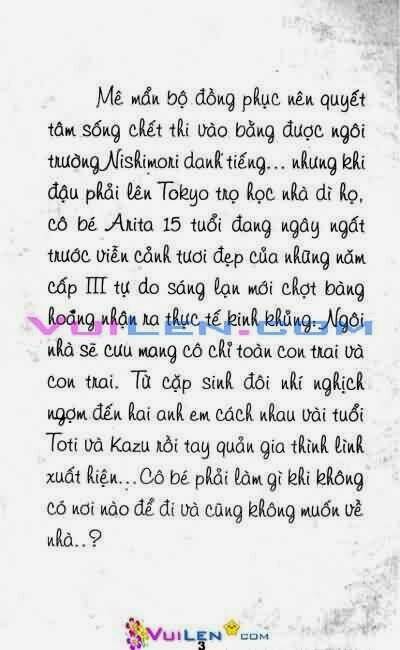 Mê mẩn bộ đồng phục nên quyết
tâm sống chết thi vào bằng được ngôi
trường Nishimori danh tiếng... nhưng khi
đậu phải lên Tokyo trọ học nhà dì họ,
cô bé Arita 15 tuổi đang ngây ngất
trước viễn cảnh tươi đẹp của những năm
cấp III tự do sáng lạn mới chợt bàng
hoảng nhận ra thực tế kinh khủng. Ngôi
VUILEN.COM
nhà sẽ cưu mang cô chỉ toàn con trai và
con trai. Từ cặp sinh đôi nhí nghịch
ngợm đến hai anh em cách nhau vài tuổi
Toti và Kazu rồi tay quản gia thình lình
xuất hiện...Cô bé phải làm gì khi không
có nơi nào để đi và cũng không muốn về
nhà..?
VUILEN.COM
3